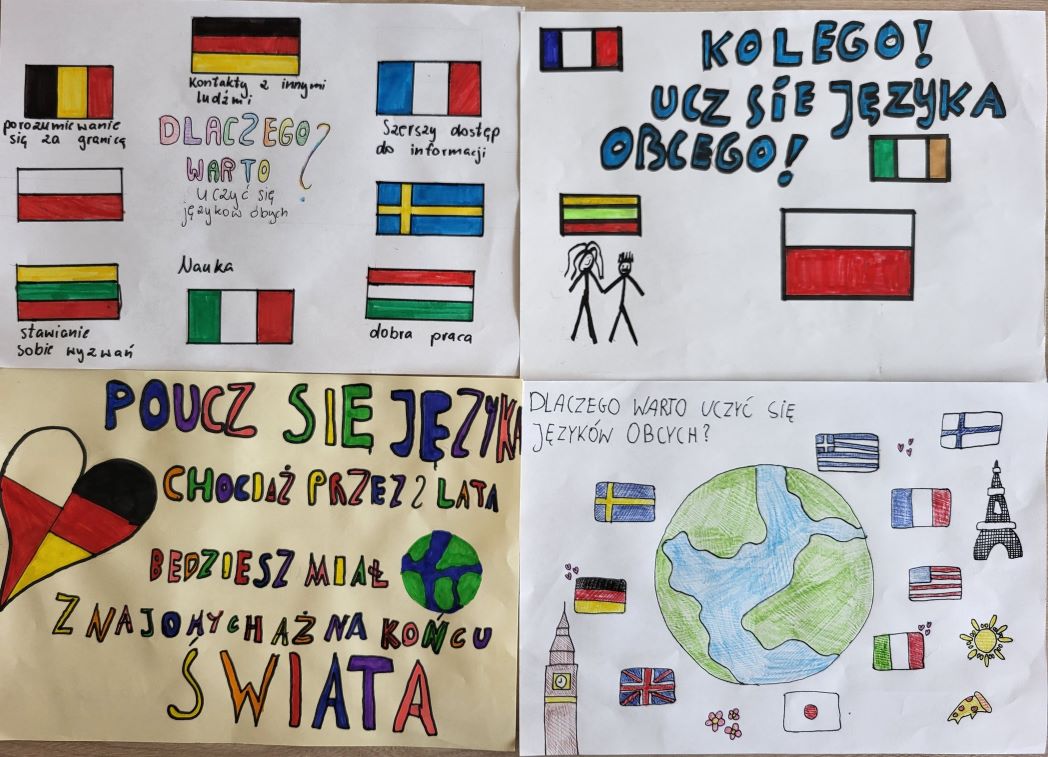 Kontakty z innymi
ludźmi
porozumiewanie
się za granicą
DLACZEGO
WARTO ?
uczyć się
języków obych
Szerszy dostęp
do informacji
Nauka
stawianie
sobie wyzwań
dobra praca
KOLEGO!
UCZ SIE JĘZYKA
OBCEGO!
POUCZ SIE JĘZYKA
CHOCIAŻ PRZEZ 2 LATA
BEDZIESZ MIAŁ
ZNAJOMYCH AŻ NA KOŃCU
ŚWIATA
DLACZEGO WARTO UCZYĆ SIĘ
JĘZYKÓW OBCYCH?